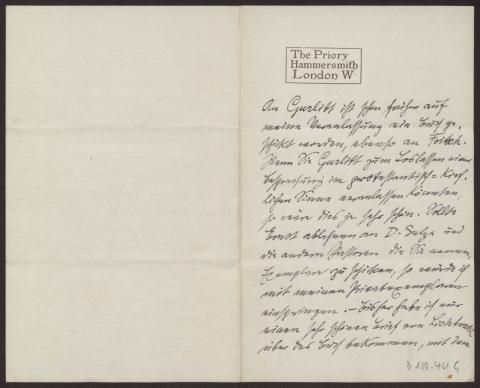 The Priory
Hammersmith
London W
An Gurlitt ist schon früher auf
meine Veranlassung ein Buch ge-
schickt worden, ebenso an Fritsch.
Wenn Sie Gurlitt zum Loslassen einer
Besprechung im protestantisch=kirch-
lichen Sinne veranlassen könnten,
so wäre dies ja sehr schön. Sollte
Ernst ablehnen an D. Sulze und
die andern Pastoren die Sie nennen,
Exemplare zu schicken, so würde ich
mit meinen Privatexemplaren
einspringen. – Bisher habe ich nur
einen sehr schönen Brief von Lichtwark
über das Buch bekommen, mit dem
D 102-44 G